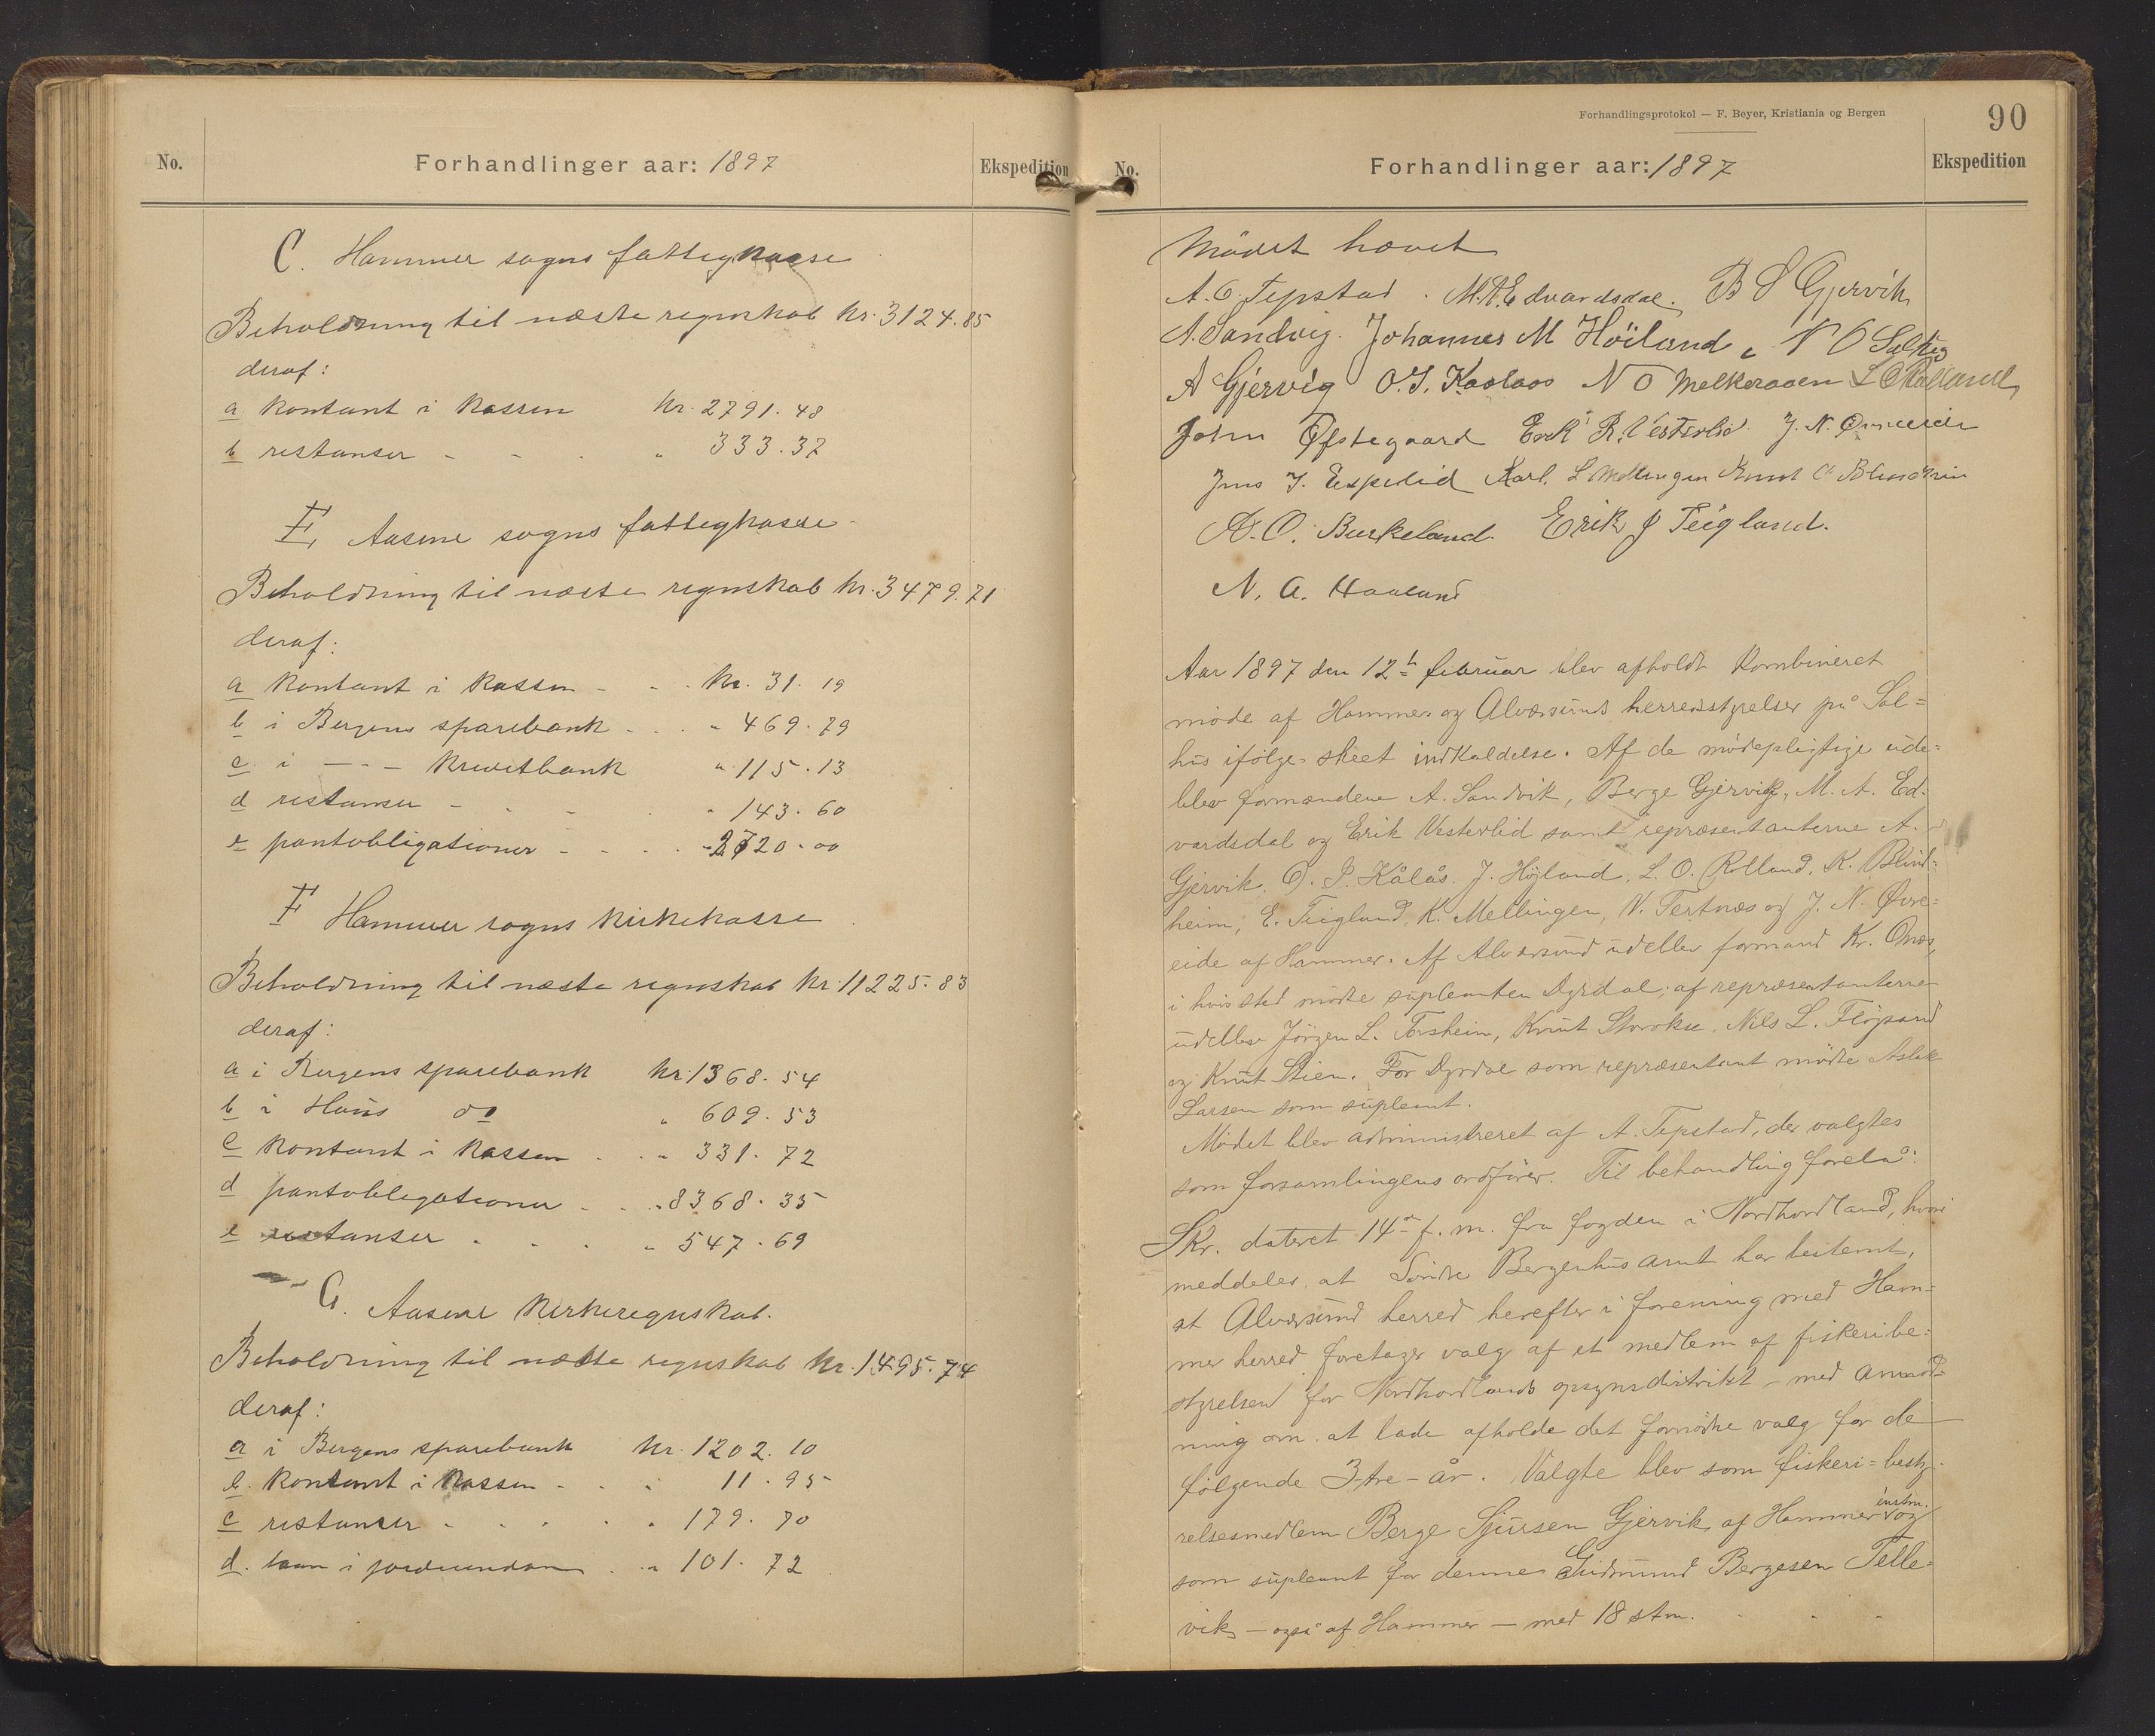 No.
Forhandlinger aar: 1897
Ekspedition
C. Hammer sogns fattigkasse
Beholdning til næste regnskab kr. 3124.85
deraf:
a kontant i kassen kr. 2791.48
b restanser - - . " 333.37
E, Aasene sogns fattigkasse
Beholdning til næste regnskab kr. 3479.71
deraf:
a kontant i kassen - - - kr. 31.19
b i Bergens sparebank - . . " 469.79
c. i - " - kreditbank " 115.13
d restanser - - - " 143.60
e pantobligationer - - . . - 2720.00
F Hammer sogns kirkekasse
Beholdning til næste regnskab kr. 11225.83
deraf:
a i Bergens sparebank kr. 1368.54
b i Haus do " 609.53
c kontant i kassen . . " 331.72
d pantobligationer . . . " 8368.35
e restanser . . . " 547.69
G. Aasene kirkeregnskab.
Beholdning til næste regnskab kr. 1495.74
deraf:
a i Bergens sparebank kr. 1202.10
b. kontant i kassen - . . 11.95
c restanser - . . . . 179.70
d. laan i . . " 101.72
Forhandlingsprotokol — F. Beyer, Kristiania og Bergen
90
No.
Forhandlinger aar: 1897
Ekspedition
Mödet hævet
A. O. Tepstad . M. A. Edvardsdal. B S Gjervik
A. Sandvig. Johannes M Höiland, N O
A Gjervig O. P. Kaalaas N O Melkeraaen L O Rolland
John Øfstegaard Erik R. Vesterlid J. N. Øvreeide
Jens J. Espelid Karl L Mellingen Knut Blindheim
A. O. Burkeland. Erik J Teigland.
N. A. Haaland
Aar 1897 den 12te februar blev afholdt kombineret
möde af Hammer og Alversunds herredsstyrelser på Sal=
hus ifölge skeet indkaldelse. Af de mödepligtige ude=
blev formændene A. Sandvik, Berge Gjervik, M. A. Ed=
vardsdal og Erik Vesterlid samt repræsentanterne A.
Gjervik. O. P. Kålås. J. Höjland, L. O. Rolland, K. Blind=
heim, E. Teigland, K. Mellingen, N. Tertnæs og J. N. Øvre=
eide af Hammer. Af Alversund udeblev formand Kr. Onæs,
i hvis sted mödte suplenten Dyrdal; af repræsentanterne
udeblev Jörgen L. Forsheim, Knut Storokse, Nils L. Flöjsand
og Knut Stien. For Dyrdal som repræsentant mödte Aslak
Larsen som suplent.
Mödet blev administreret af A. Tepstad, der valgtes
som forsamlingens ordförer. Til behandling forelå:
Skr. dateret 14de f. m. fra fogden i Nordhordland, hvori
meddeles, at Söndre Bergenhus amt har bestemt,
at Alversund herred herefter i forening med Ham=
mer herred foretager valg af et medlem af fiskeribe=
styrelsen for Nordhordlands opsynsdistrikt - med anmod=
ning om at lade afholde det fornödne valg for de
fölgende 3-tre-år. Valgte blev som fiskeri=besty=
relsesmedlem Berge Sjursen Gjervik af Hammer enstm. og
som suplent for denne Gudmund Bergesen Telle=
vik - også af Hammer - med 18 stm.